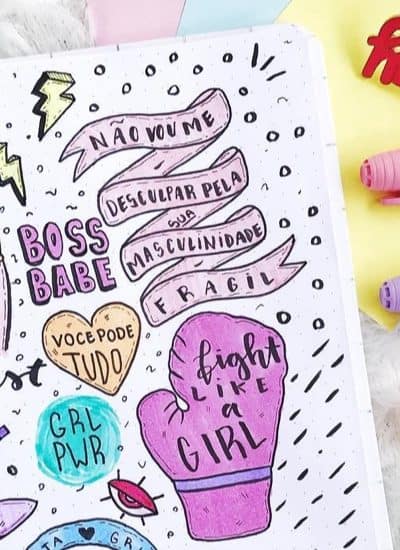 NÃO VOU ME
DESCULPAR PELA
SUA
MASCULINIDADE
FRAGIL
BOSS
BABE
VOCE PODE
TUDO
fight
LIKE
a
GIRL
GRL
PWR